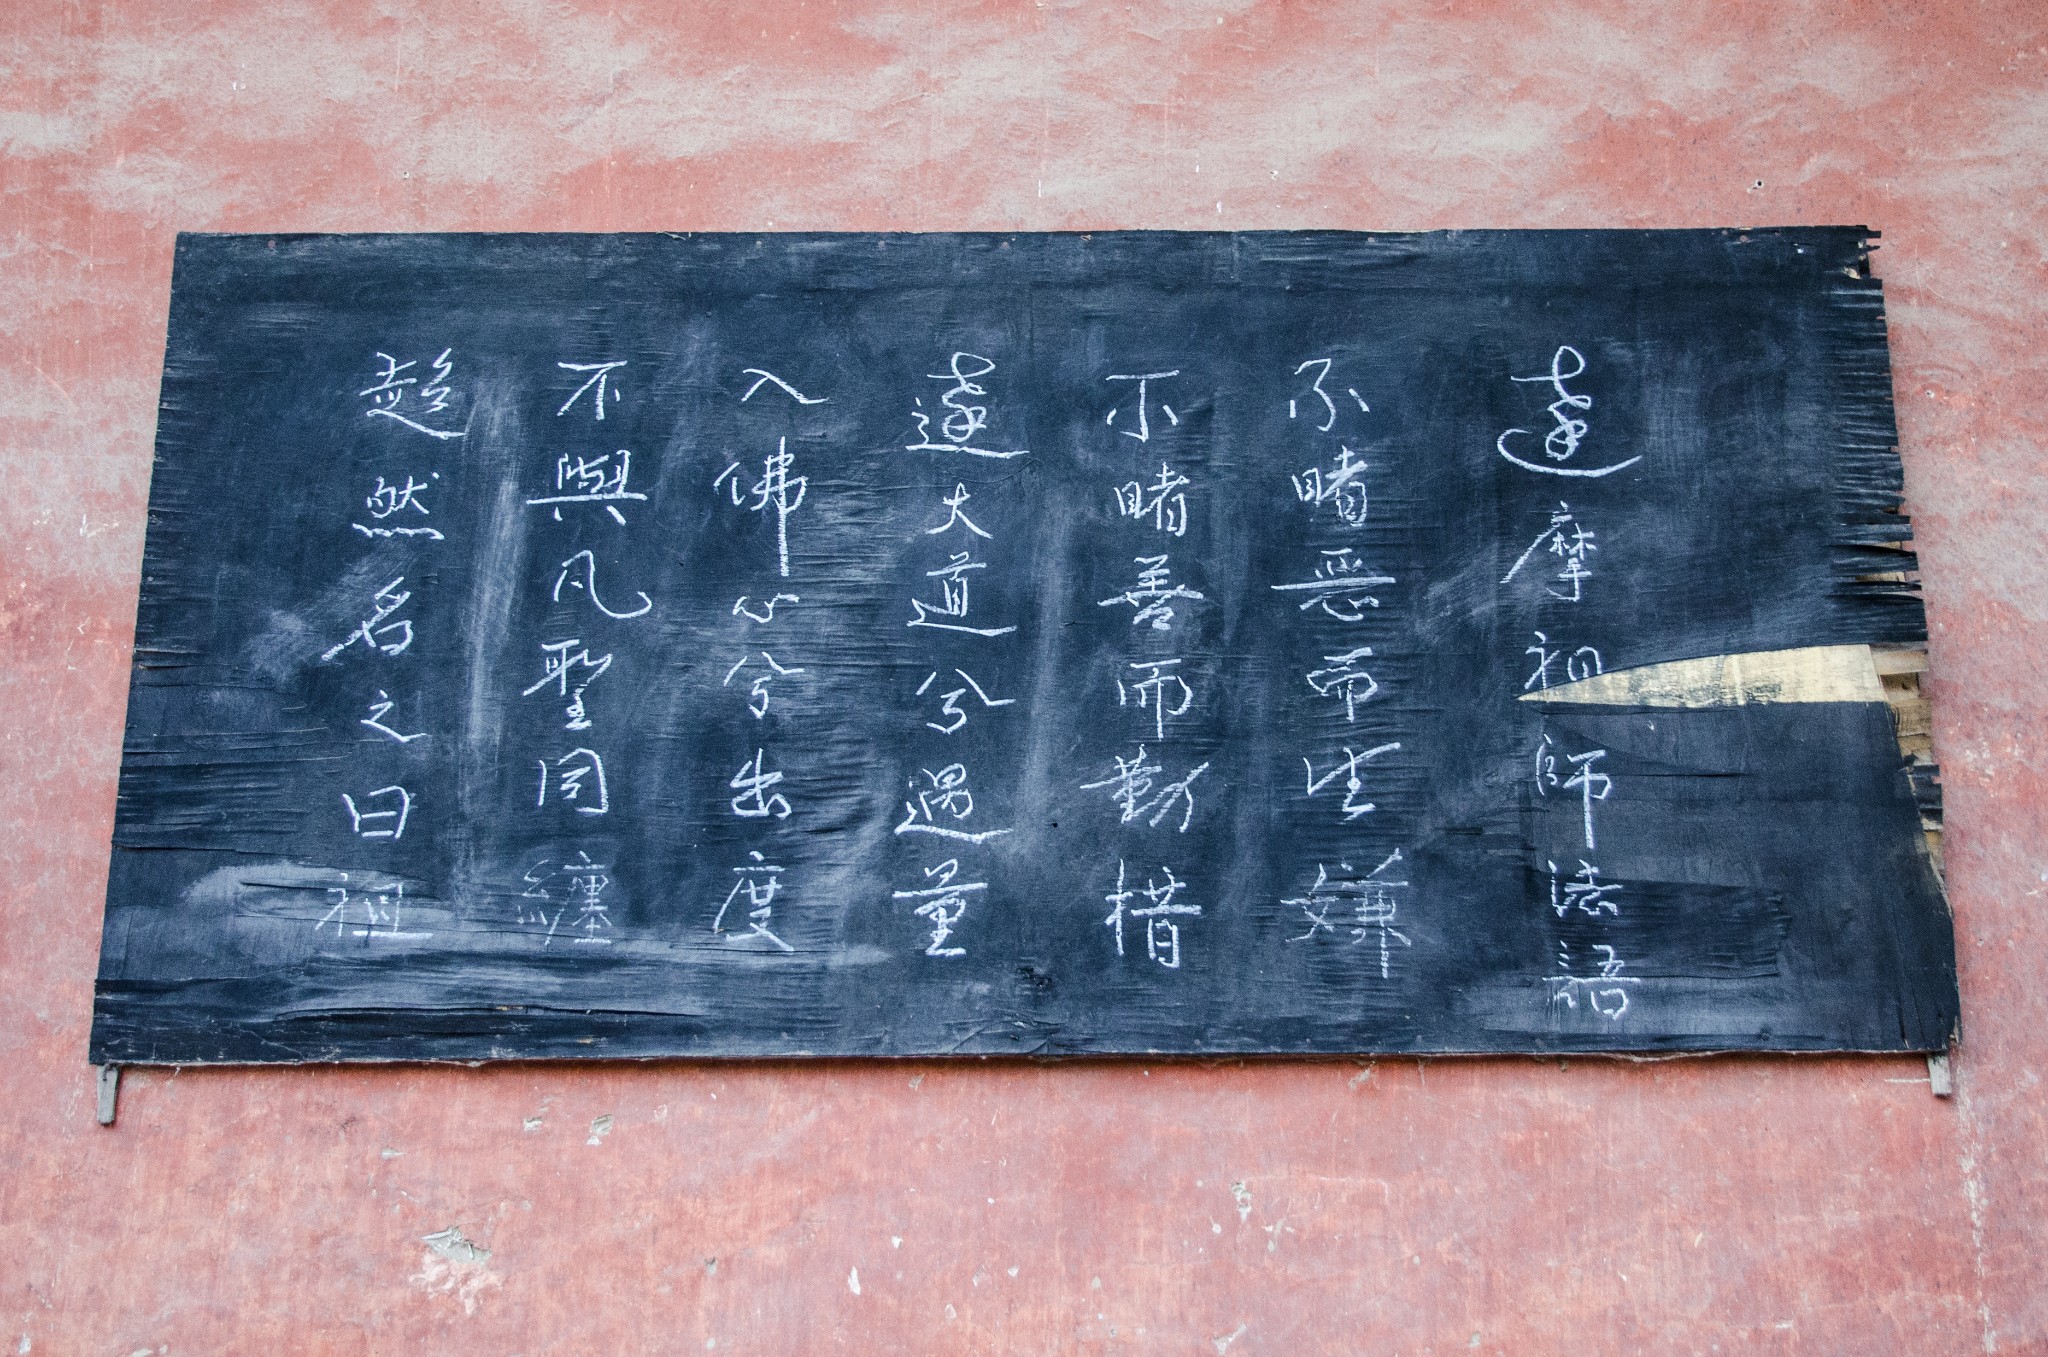 達摩祖師法語
不睹恶而生嫌
不睹善而勤措
達大道兮遇量
入佛心兮出度
不與凡聖同纏
超然名之曰祖